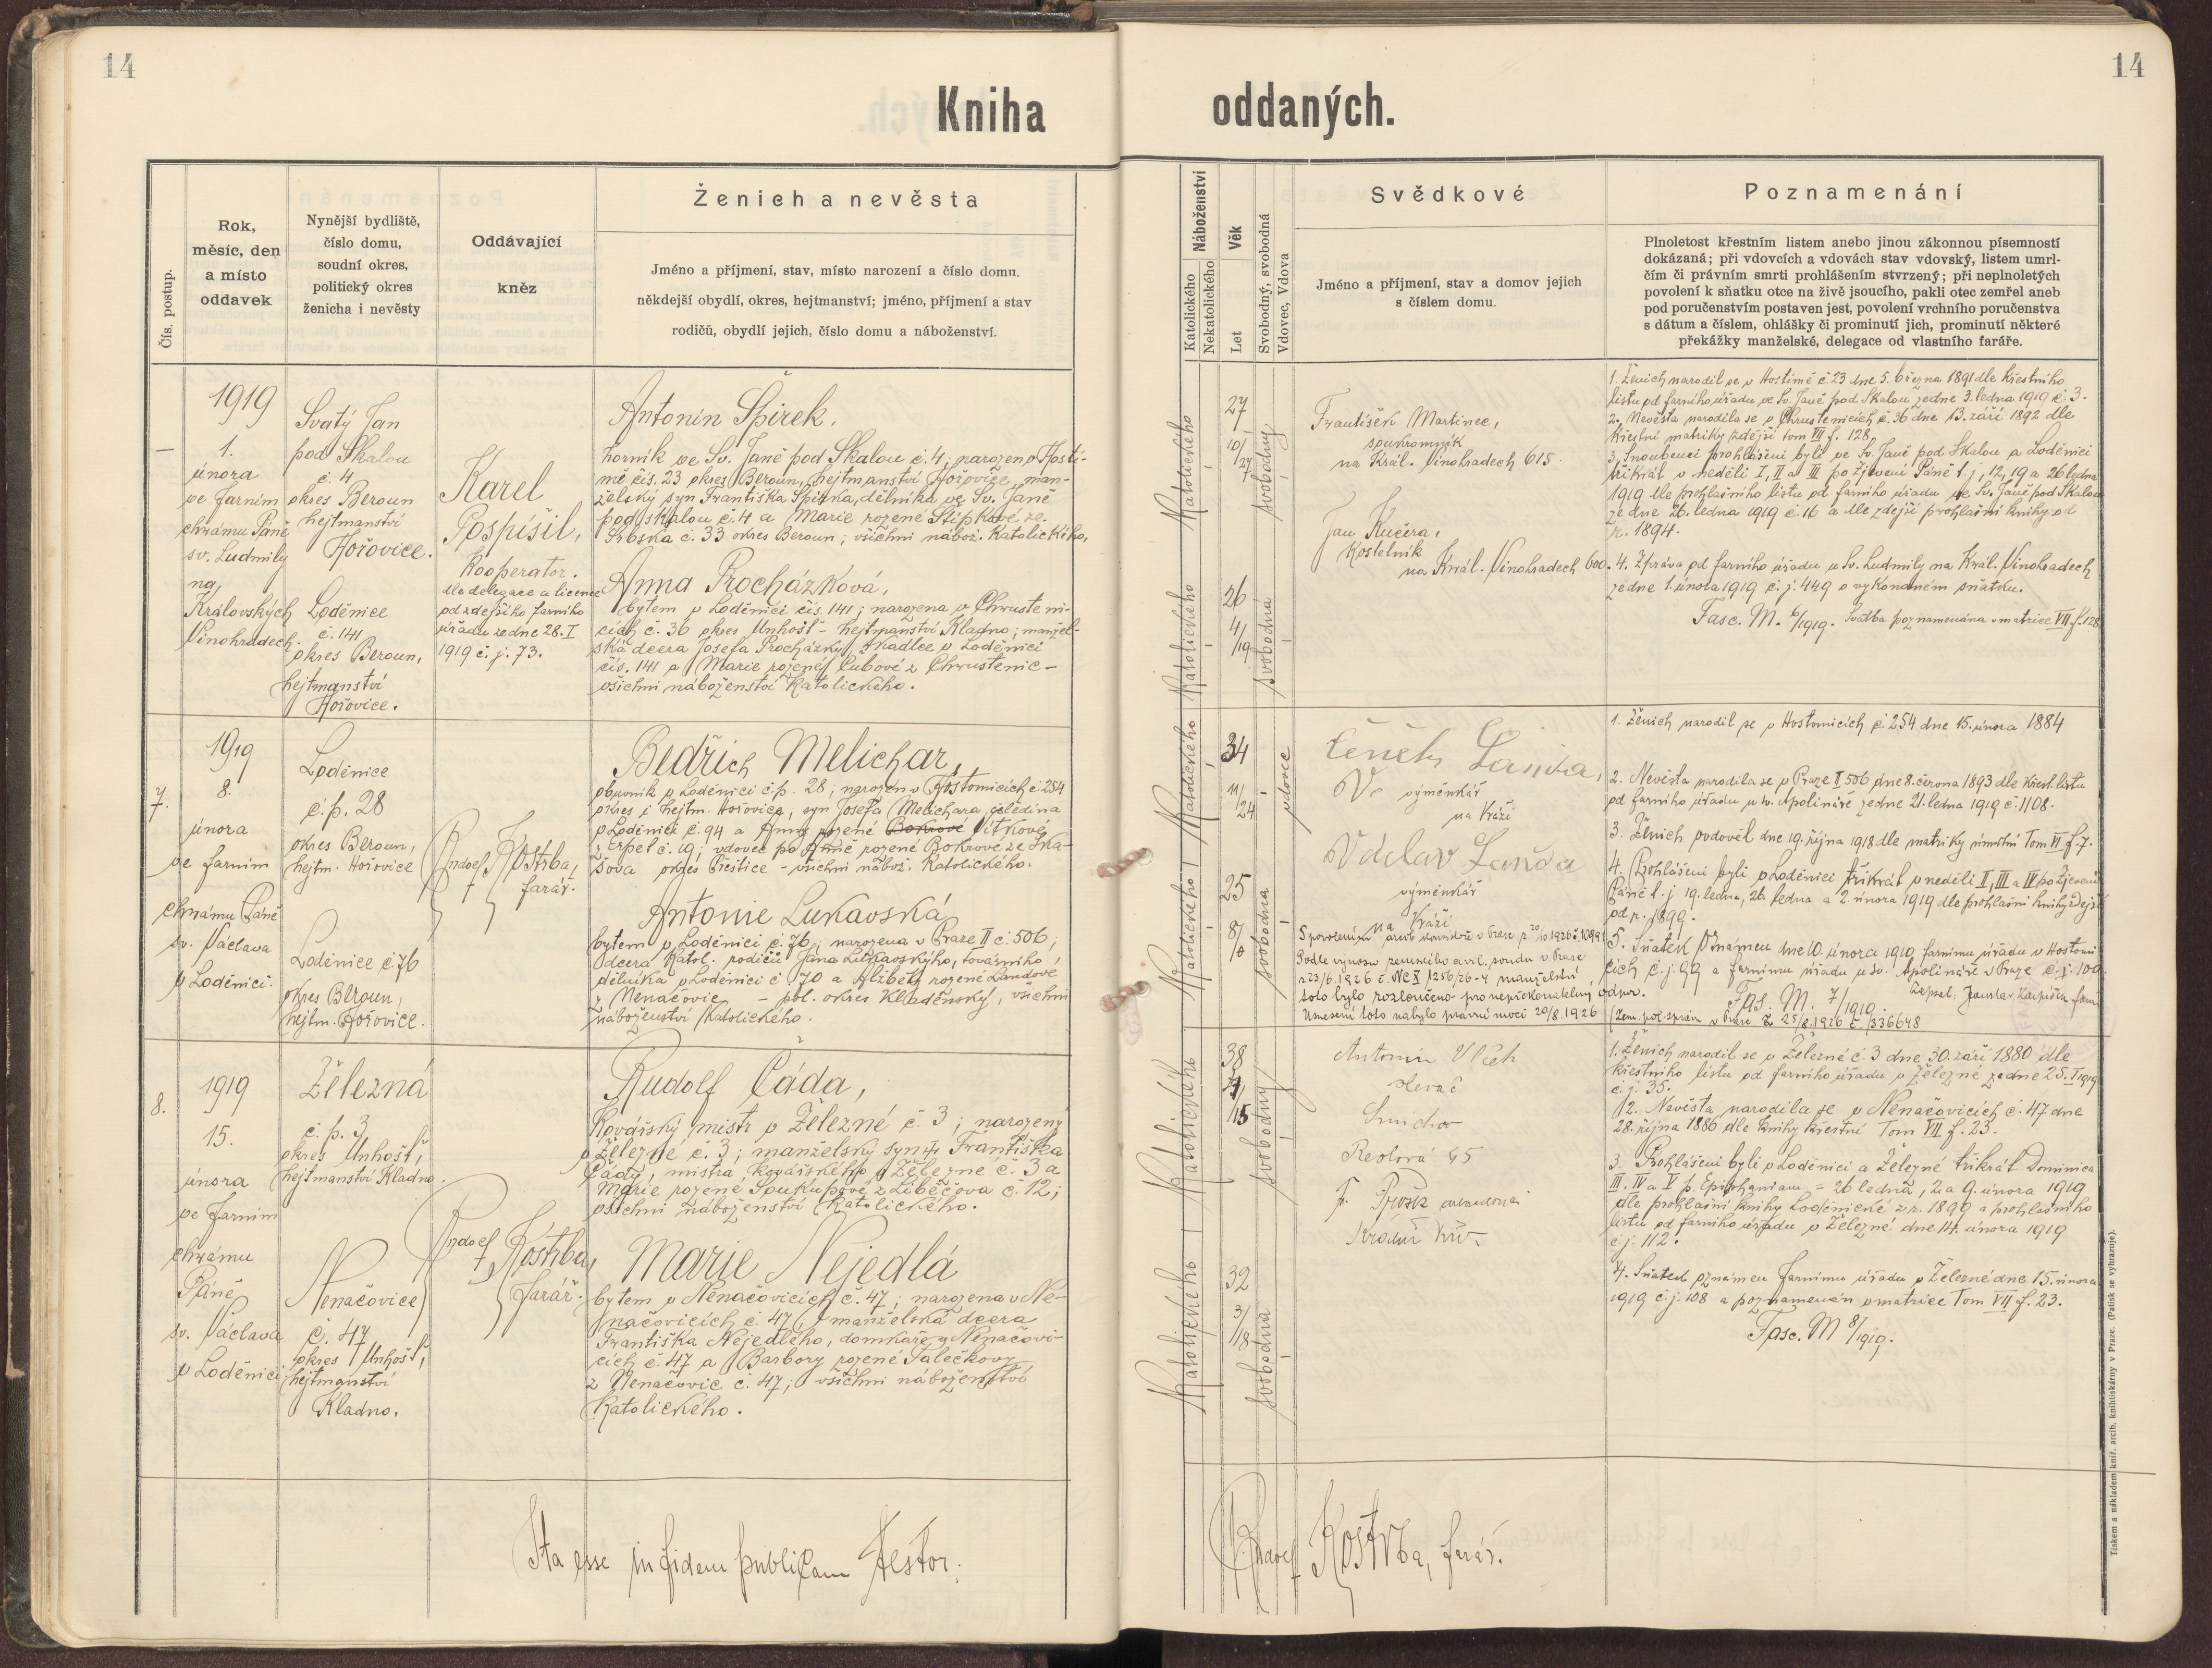 14
14
Kniha
oddaných.
Čís. postup.
Rok,
měsíc, den
a místo
oddavek
Nynější bydliště,
číslo domu,
soudní okres,
politický okres
ženicha i nevěsty
Oddávající
kněz
Ženich a nevěsta
Jméno a příjmení, stav, místo narození a číslo domu.
někdejší obydlí, okres, hejtmanství; jméno, příjmení a stav
rodičů, obydlí jejich, číslo domu a náboženství.
Náboženství
Katolického
Nekatolického
Věk
Let
Svobodný, svobodná
Vdovec, Vdova
Svědkové
Jméno a příjmení, stav a domov jejich
s číslem domu.
Poznamenání
Plnoletost křestním listem anebo jinou zákonnou písemností
dokázaná; při vdovcích a vdovách stav vdovský, listem umrl-
čím či právním smrti prohlášením stvrzený; při neplnoletých
povolení k sňatku otce na živě jsoucího, pakli otec zemřel aneb
pod poručenstvím postaven jest, povolení vrchního poručenstva
s dátum a číslem, ohlášky či prominutí jich, prominutí některé
překážky manželské, delegace od vlastního faráře.
–
1919
1.
února
ve farním
chrámu Páně
sv. Ludmily
na
Královských
Vinohradech.
Svatý Jan
pod Skalou
č. 4
okres Beroun
hejtmanství
Hořovice.
Loděnice
č. 141
okres Beroun,
hejtmanství
Hořovice.
Karel
Pospíšil,
Kooperator.
dle delegace a licence
od zdejšího farního
úřadu ze dne 28. I
1919 č. j. 73.
Antonín Špirek,
horník ve Sv. Janě pod Skalou č. 4; narozen v Hostí-
mě čís. 23 okres Beroun, hejtmanství Hořovice, man-
želský syn Františka Špirka, dělníka ve Sv. Janě
pod Skalou č. 4 a Marie rozené Štípkové ze
Srbska č. 33 okres Beroun; všichni nábož. Katolického,
Anna Procházková,
bytem v Loděnici čís. 141; narozena v Chrusteni-
cích č. 36 okres Unhošť - hejtmanství Kladno; manžel-
ská dcera Josefa Procházky, tkadlce v Loděnici
čís. 141 a Marie rozené Cubové z Chrustenic -
všichni náboženství Katolického.
Katolického
27
10/27
svobodný
Katolického
26
4/19
svobodná
František Martinec,
soukromník
na Král. Vinohradech 615.
Jan Kučera,
Kostelník
na Král. Vinohradech 600.
1. Ženich narodil se v Hostimě č. 23 dne 5. března 1891 dle křestního
listu od farního úřadu ve Sv. Janě pod Skalou ze dne 3. ledna 1919 č. 3.
2. Nevěsta narodila se v Chrustenicích č. 36 dne 13. září 1892 dle
křestní matriky zdejší tom VII f. 128.
3. Snoubenci prohlášeni byli ve Sv. Janě pod Skalou a Loděnici
třikrát v neděli I, II a III po Zjevení Páně t. j. 12, 19 a 26 ledna
1919 dle prohlašního listu od farního úřadu ve Sv. Janě pod Skalou
ze dne 26. ledna 1919 č. 16 a dle zdejší prohlašní knihy od
r. 1894.
4. Zpráva od farního úřadu u Sv. Ludmily na Král. Vinohradech
ze dne 1. února 1919 č. j. 449 o vykonaném sňatku.
Fasc. M. 6/1919. Svatba poznamenána v matrice VII f. 128
7.
1919
8.
února
ve farním
chrámu Páně
sv. Václava
v Loděnici.
Loděnice
č. p. 28
okres Beroun,
hejtm. Hořovice
Loděnice č. 76
okres Beroun,
hejtm. Hořovice.
Rudolf Kostrba,
farář.
Bedřich Melichar,
obuvník v Loděnici č. p. 28; narozen v Hostomicích č. 254
okres i hejtm. Hořovice, syn Josefa Melichara čeledína
v Loděnici č. 94 a Anny rozené Bokrové Vítkové
z Erpel č. 19; vdovec po Anně rozené Bokrové ze Ska-
šova okres Přeštice - všichni nábož. Katolického.
Antonie Lukavská
bytem v Loděnici č. 76; narozena v Praze II č. 506;
dcera Katol. rodičů Jana Lukavského, továrního
dělníka v Loděnici č. 70 a Alžběty rozené Landové
z Nenačovic - pol. okres Kladenský, všichni
náboženství Katolického.
Katolického
34
11/24
vdovec
Katolického
25
8/0
svobodná
Čeněk Landa,
výměnkář
na Kráži
Václav Landa
výměnkář
na Kráži
S povolením arcib. konsistoře v Praze z 20/10 1926 č. 10991
Podle výnosu zemského civil. soudu v Praze
z 23/6 1926 č. Nc X 1256/26-4 manželství
toto bylo rozloučeno pro nepřekonatelný odpor.
Usnesení toto nabylo právní moci 20/8. 1926
1. Ženich narodil se v Hostomicích č. 254 dne 15. února 1884
2. Nevěsta narodila se v Praze II 506 dne 8. června 1893 dle křest. listu
od farního úřadu u sv. Apolináře ze dne 21. ledna 1919 č. 1108.
3. Ženich ovdověl dne 19. října 1918 dle matriky úmrtní Tom VI f. 7.
4. Prohlášeni byli v Loděnici třikrát v neděli II, III a IV po Zjevení
Páně t. j. 19. ledna, 26. ledna a 2. února 1919 dle prohlašní knihy zdejší
od r. 1899.
5. Sňatek oznámen dne 10. února 1919 farnímu úřadu v Hostomi-
cích č. j. 99 a farnímu úřadu u sv. Apolináře v Praze č. j. 100.
Fas. M. 7/1919.
(Zem. pol. správa v Praze z 25/8. 1926 č. 336648
8.
1919
15.
února
ve farním
chrámu
Páně
sv. Václava
v Loděnici
Železná
č. p. 3
okres Unhošť,
hejtmanství Kladno.
Nenačovice
č. 47
okres Unhošť,
hejtmanství
Kladno.
Rudolf Kostrba,
farář.
Rudolf Čáda,
Kovářský mistr v Železné č. 3; narozený
v Železné č. 3; manželský syn Františka
Čády, mistra kovářského v Železné č. 3 a
Marie rozené Soukupové z Libečova č. 12;
všichni náboženství Katolického.
Marie Nejedlá
bytem v Nenačovicích č. 47; narozena v Ne-
načovicích č. 47, manželská dcera
Františka Nejedlého, domkáře v Nenačovi-
cích č. 47 a Barbory rozené Salečkovy
z Nenačovic č. 47; všichni náboženství
Katolického.
Katolického
38
4/15
svobodný
Katolického
32
3/18
svobodná
Antonín Vlček
Smíchov
1. Ženich narodil se v Železné č. 3 dne 30. září 1880 dle
křestního listu od farního úřadu v Železné ze dne 25. I 1919
č. j. 35.
2. Nevěsta narodila se v Nenačovicích č. 47 dne
28. října 1886 dle knihy křestní Tom VII f. 23.
3. Prohlášeni byli v Loděnici a Železné třikrát Dominica
III. IV a V p. Epiphaniam = 26 ledna, 2. a 9. února 1919
dle prohlašní knihy Loděnické z r. 1899 a prohlašního
listu od farního úřadu v Železné dne 14. února 1919
č. j. 112.
4. Sňatek oznámen farnímu úřadu v Železné dne 15. února
1919 č. j. 108 a poznamenán v matrice Tom VII f. 23.
Fasc. M 8/1919.
Ita esse in fidem publicam testor.
Rudolf Kostrba, farář.
Tiskem a nákladem kníž. arcib. knihtiskárny v Praze. (Patisk se vyhrazuje).